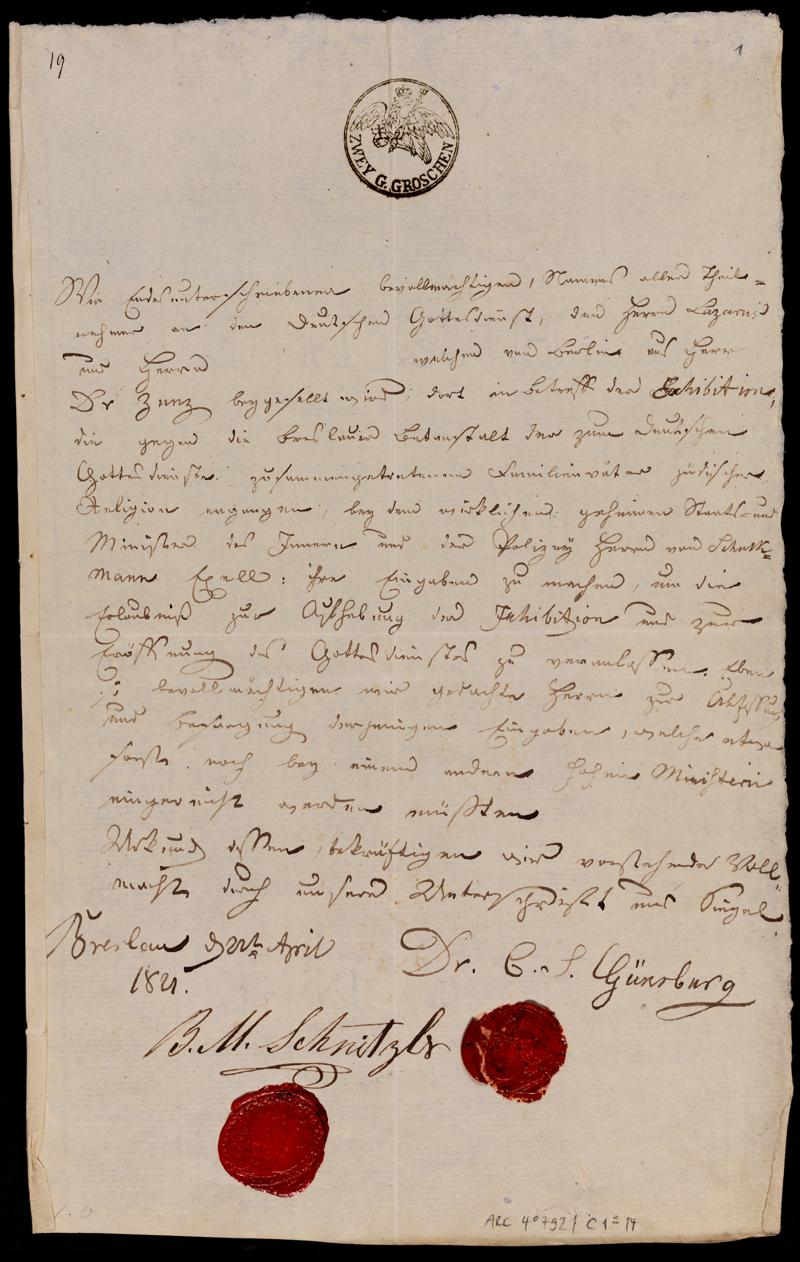 19
1
ZWEY G. GROSCHEN
Wir Endesunterschriebenen bevollmächtigen, Namens aller Theil=
nehmer an den deutschen Gottesdienst, den Herrn Lazarus
und Herrn welchen von Berlin aus Herr
Dr Zunz beygesellt wird, dort in Betreff der Exhibition,
die gegen die Breslauer Betanstalt der zum deutschen
Gottesdienste zusammengetretenen Familienväter jüdischer
Religion ergangen, bey dem wirklichen geheimen Staats= und
Minister des Innern und der Polizey Herrn von Schuck=
mann Exell: ihre Eingaben zu machen, um die
Erlaubniß zur Aufhebung der Inhibition und zur
Eröffnung des Gottesdienstes zu veranlassen. Eben
so bevollmächtigen wir gedachte Herrn zur
und Besorgung derjenigen Eingaben, welche etwa
sonst noch bey einem andern Hohen Ministerii
eingereicht werden müssten
Urkund dessen, bekräftigen wir vorstehende Voll
macht durch unsere Unterschrift und Siegel
Breslau d April
1821.
Dr. C. S. Günsburg
B. M. Schnitzler
ARC 4° 792/ C1-14